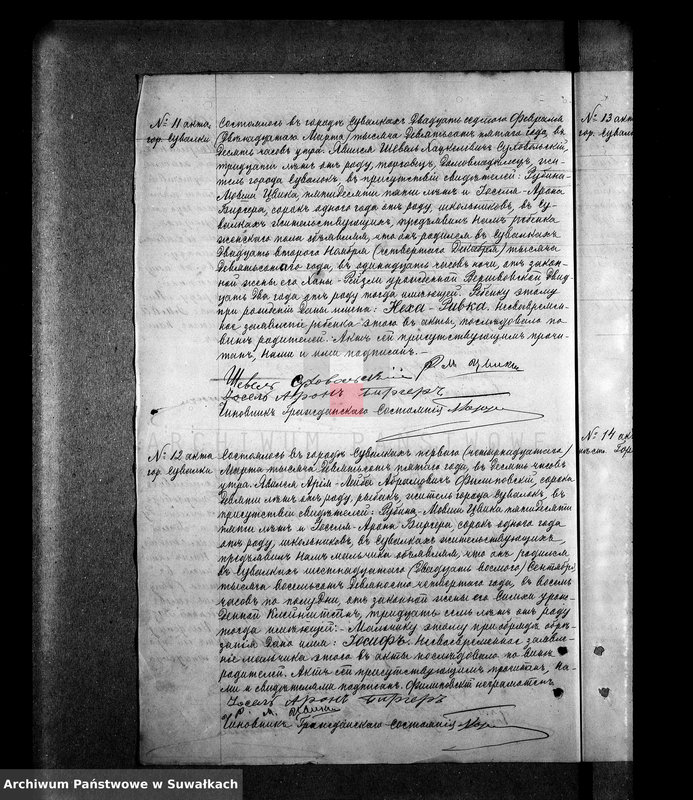 № 11 акта
гор. Сувалки
Состоялось въ городѣ Сувалкахъ двадцать седьмого Февраля
(двѣнадцатаго Марта) тысяча девятьсотъ пятаго года, въ
десять часовъ утра. Явился Шевель Сухо­вольскій,
тридцати лѣтъ отъ роду, торговецъ, домовладѣлецъ, жи-
тель города Сувалокъ, въ присутствіи свидѣтелей: Рубина-
Мовши Цвика, пятидесяти пяти лѣтъ и Іоселя-Арона
Биргера, сорокъ одного года отъ роду, школьниковъ, въ Су-
валкахъ жительствующихъ, предъявилъ намъ ребенка
женскаго пола объявляя, что онъ родился въ Сувалкахъ
двадцать второго Ноября (четвертаго Декабря) тысяча
девятьсотаго года, въ одиннадцать часовъ ночи, отъ закон-
ной жены его Ханы-Рейзи урожденной Вержбовской двад-
цать два года отъ роду тогда имѣющей. Ребенку этому
при рожденіи дано имя: Хеха-Ривка. Несвоевремен-
ное заявленіе ребенка этого въ акты, послѣдовало по
винѣ родителей. Актъ сей присутствующимъ прочи-
танъ, нами и ими подписанъ.—
Шевель Суховольскій Р. М. Цвикъ
Іосель Аронъ Биргеръ
Чиновникъ Гражданскаго Состоянія
ARCHIWUM PAŃSTWOWE
№ 12 акта
гор. Сувалки
Состоялось въ городѣ Сувалкахъ перваго (четырнадцатаго)
Марта тысяча девятьсотъ пятаго года, въ десять часовъ
утра. Явился Арія-Лейба Абрамовичъ Филиповскій, сорока
девяти лѣтъ отъ роду, рыбакъ, житель города Сувалокъ, въ
присутствіи свидѣтелей: Рубина-Мовши Цвика пятидесяти
пяти лѣтъ и Іоселя-Арона Биргера, сорокъ одного года
отъ роду, школьниковъ, въ Сувалкахъ жительствующихъ,
предъявилъ намъ мальчика объявляя, что онъ родился
въ Сувалкахъ шестнадцатаго (двадцать восьмого) Сентября
тысяча восемьсотъ девяносто четвертаго года, въ восемь
часовъ по полудни, отъ законной жены его Симхи урож-
денной Клейнштейнъ, тридцать семь лѣтъ отъ роду
тогда имѣющей. Мальчику этому при обрядѣ обрѣ-
занія дано имя: Іосифъ. Несвоевременное заявле-
ніе мальчика этого въ акты послѣдовало по винѣ
родителей. Актъ сей присутствующимъ прочитанъ, на-
ми и свидѣтелями подписанъ. Филиповскій неграмотенъ
Іосель Аронъ Биргеръ
Р. М. Цвикъ
Чиновникъ Гражданскаго Состоянія
№ 13 акт
гор. Сувалки
№ 14 ак
Archiwum Państwowe w Suwałkach